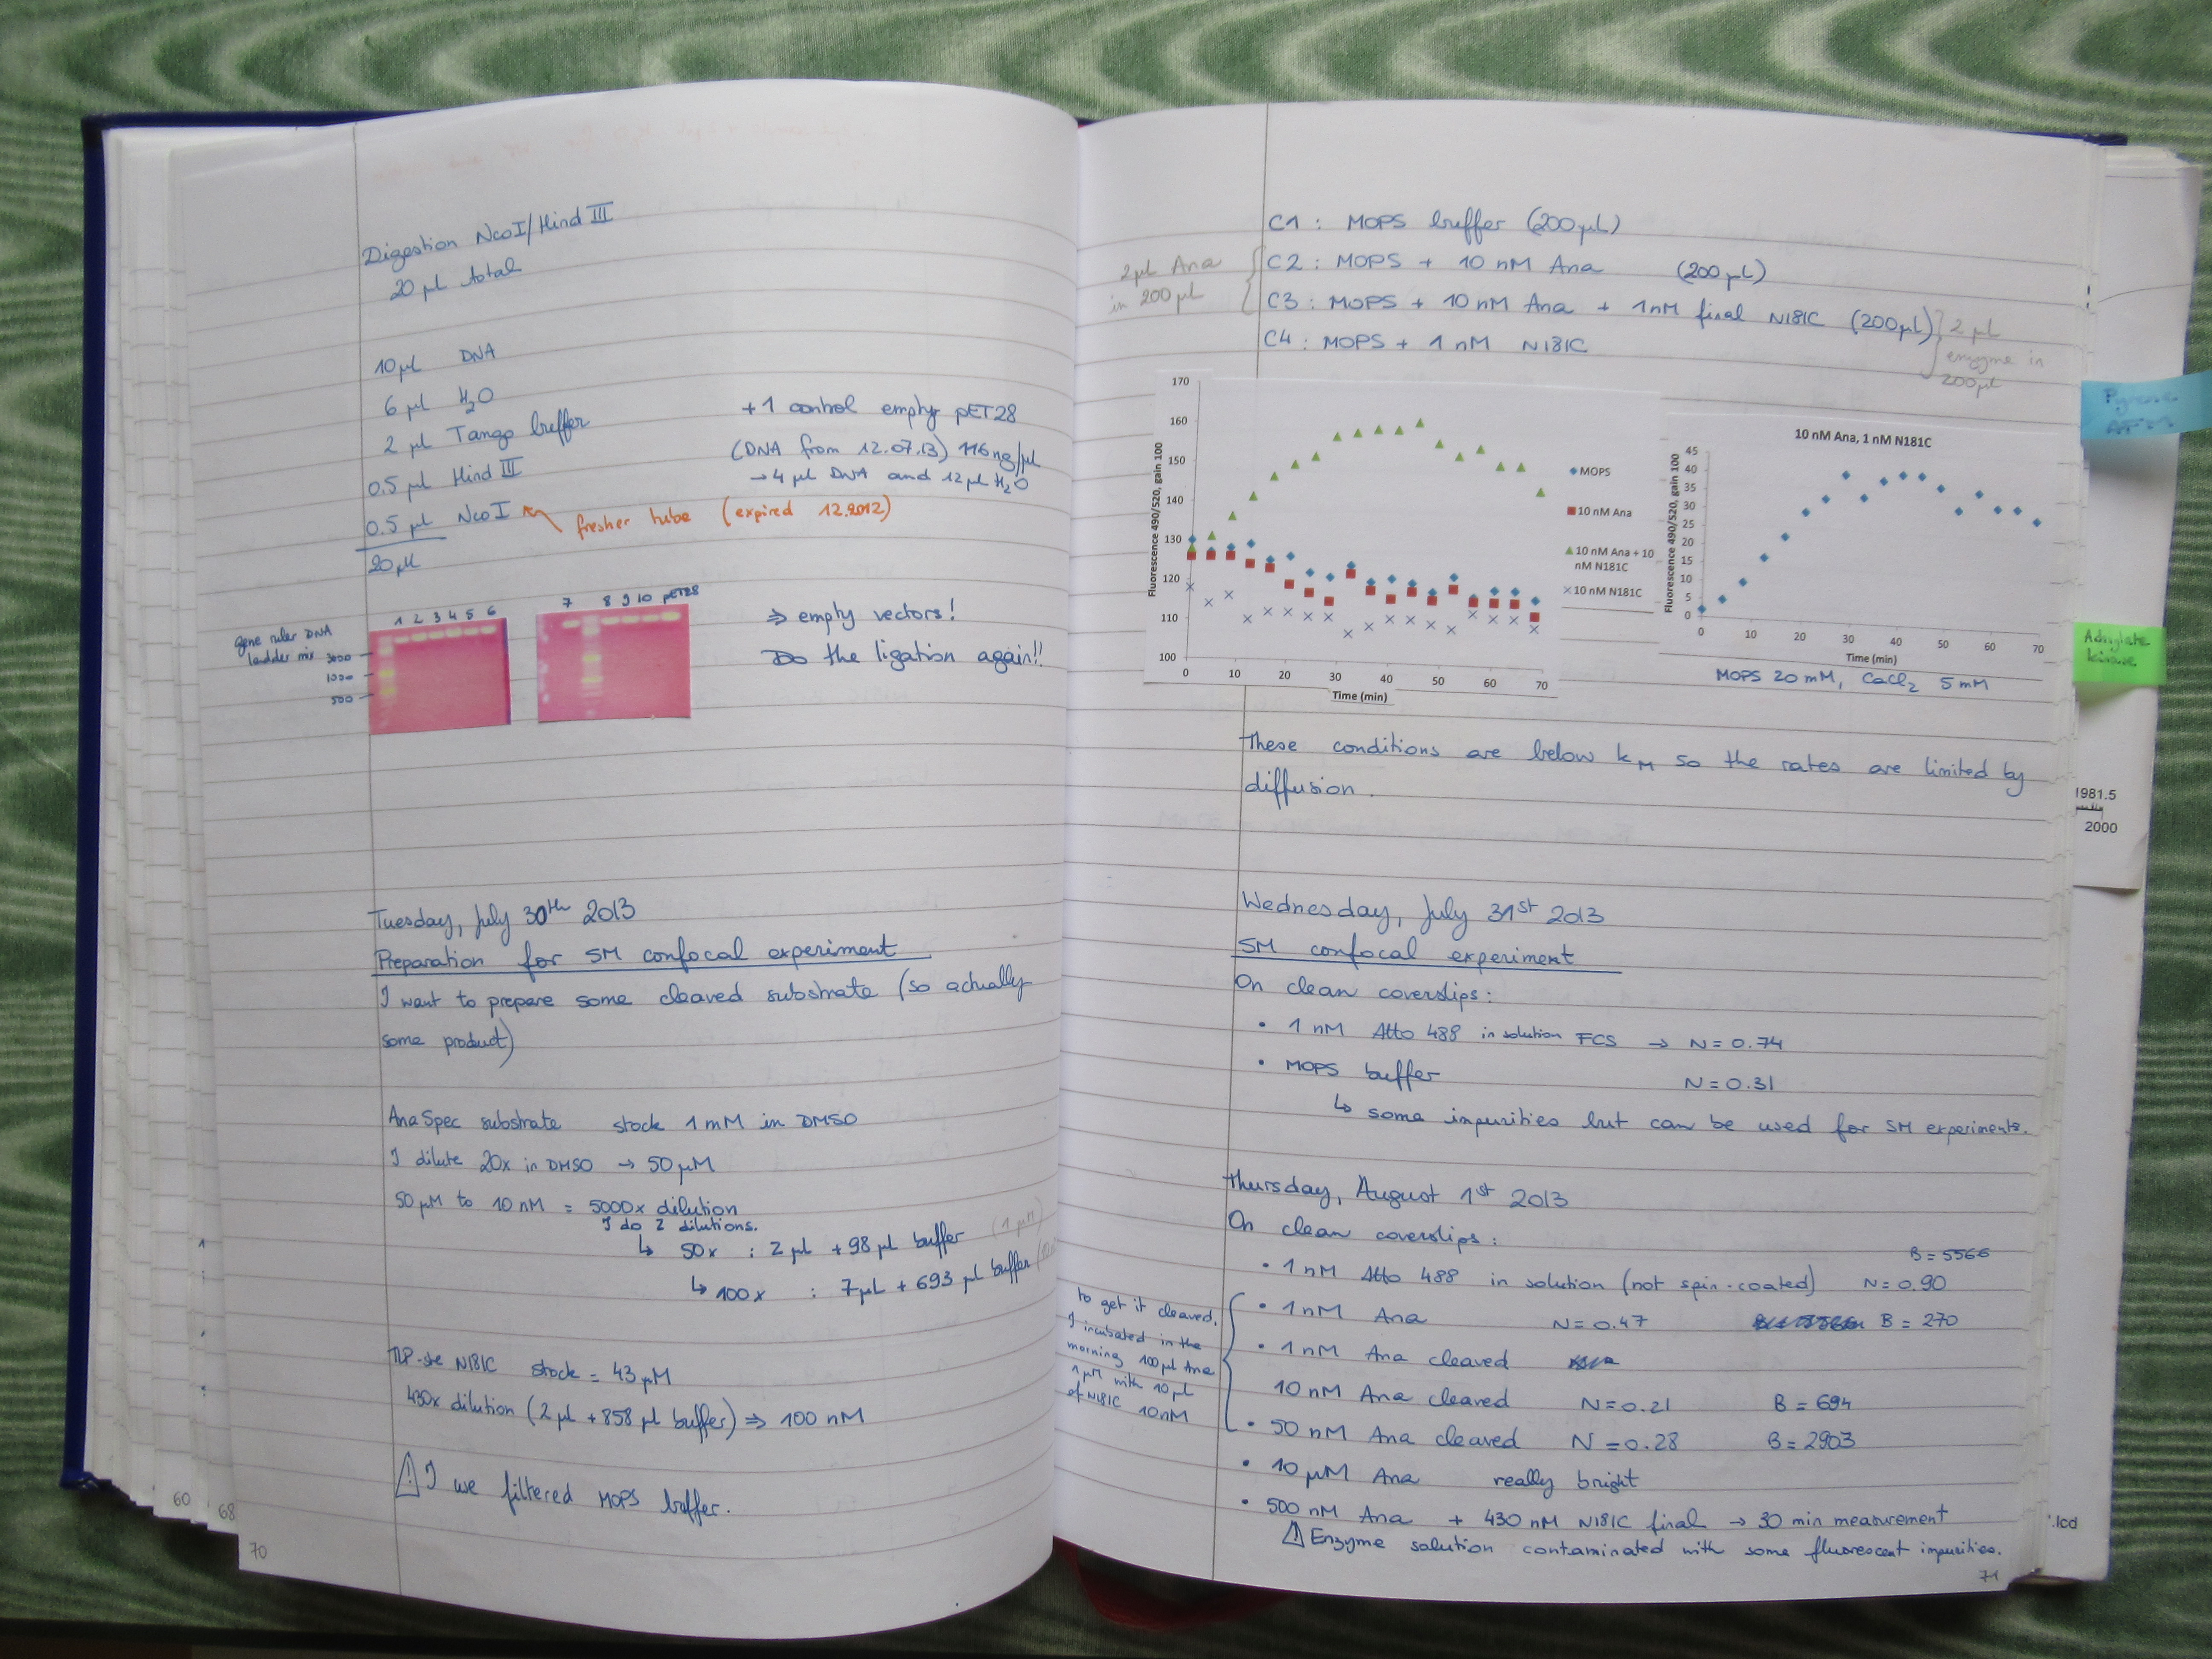 Digestion NcoI/Hind III
20 µl total
10 µl DNA
6 µl H2O
2 µl Tango buffer
0.5 µl Hind III
0.5 µl NcoI
fresher tube (expired 12.2012)
20 µl
+1 control empty pET28
(DNA from 12.07.13) 116 ng/µl
→ 4 µl DNA and 12 µl H2O
gene ruler DNA
ladder mix 3000
1000
500
1 2 3 4 5 6
7 8 9 10 pET28
⇒ empty vectors!
Do the ligation again!!
Tuesday, July 30th 2013
Preparation for SM confocal experiment
I want to prepare some cleaved substrate (so actually
some product)
AnaSpec substrate stock 1 mM in DMSO
I dilute 20x in DMSO → 50 µM
50 µM to 10 nM = 5000x dilution
I do 2 dilutions.
↳ 50x : 2 µl + 98 µl buffer (1 µM)
↳ 100x : 7 µL + 693 µl buffer
TLP-ste N181C stock = 43 µM
430x dilution (2 µl + 858 µl buffer) ⇒ 100 nM
⚠ I we filtered MOPS buffer.
60
68
70
C1 : MOPS buffer (200 µL)
C2 : MOPS + 10 nM Ana (200 µL)
C3 : MOPS + 10 nM Ana + 1 nM final N181C (200 µL)
C4 : MOPS + 1 nM N181C
2 µl Ana
in 200 µl
2 µl
enzyme in
200 µl
170
160
150
140
130
120
110
100
Fluorescence 490/520, gain 100
0 10 20 30 40 50 60 70
Time (min)
MOPS
10 nM Ana
10 nM Ana + 10
nM N181C
10 nM N181C
10 nM Ana, 1 nM N181C
45
40
35
30
25
20
15
10
5
0
Fluorescence 490/520, gain 100
0 10 20 30 40 50 60 70
Time (min)
MOPS 20 mM, CaCl2 5 mM
These conditions are below kM so the rates are limited by
diffusion.
Wednesday, July 31st 2013
SM confocal experiment
On clean coverslips:
• 1 nM Atto 488 in solution FCS → N = 0.74
• MOPS buffer N = 0.31
↳ some impurities but can be used for SM experiments.
Thursday, August 1st 2013
On clean coverslips:
B = 5566
• 1 nM Atto 488 in solution (not spin-coated) N = 0.90
• 1 nM Ana N = 0.47 B = 270
• 1 nM Ana cleaved
10 nM Ana cleaved N = 0.21 B = 694
• 50 nM Ana cleaved N = 0.28 B = 2903
• 10 µM Ana really bright
• 500 nM Ana + 430 nM N181C final → 30 min measurement
⚠ Enzyme solution contaminated with some fluorescent impurities.
to get it cleaved,
I incubated in the
morning 100 µl Ana
1 µM with 10 µl
of N181C 10 nM
71
Pyrene
Adenylate
kinase
1981.5
2000
.lcd